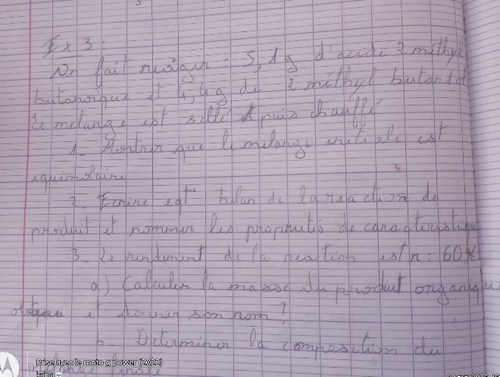 Ex 3 :
On fait réagir : 5,1g d'acide 2 méthyl
butanoïque et 4,4g de 2 méthyl butan
le mélange est scellé puis chauffé
1 - Montrer que le mélange initiale est
equimolaire
2 - Ecrire eqt° bilan de la reaction
produit et nommer les propriétés de caracteristique
3 - Le rendement de la reaction est r : 60%
a) Calculer la masse du produit organique
et donner son nom ?
b Determiner la composition du
finale